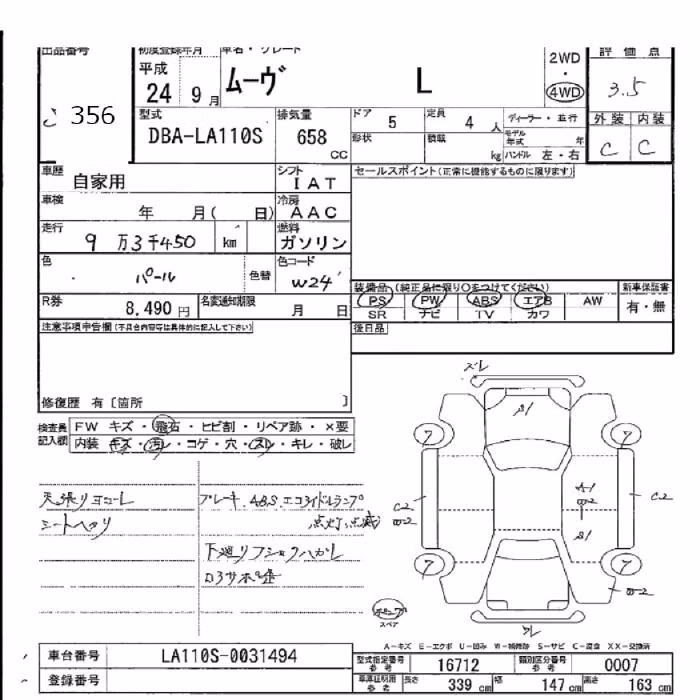 出品番号 初度登録年月 車名・グレード 評価点
356 平成 24 9月 ムーヴ L 2WD・4WD 3.5
型式 排気量 ドア 定員 ディーラー・並行 外装 内装
DBA-LA110S 658 CC 5 4人 モデル年式 年 C C
形状 積載 kg ハンドル 左・右
車歴 自家用 シフト IAT セールスポイント(正常に機能するものに限ります)
車検 年 月( 日) 冷房 AAC
走行 9万3千450 km 燃料 ガソリン
色 パール 色替 色コード W24
装備品(純正品に限り○をつけてください) 新車保証書
R券 8,490円 名変通知期限 月 日 PS PW ABS エアB AW 有・無
SR ナビ TV カワ
注意事項申告欄(不具合内容等は具体的に記入して下さい) 後日品
修復歴 有〔箇所 〕
検査員記入欄 FW キズ・飛石・ヒビ割・リペア跡・×要
内装 キズ・汚レ・コゲ・穴・スレ・キレ・破レ
天張りヨゴレ
シートヘタリ
ブレーキ.ABS.エコアイドルランプ
点灯,点滅
下廻りフショクハガレ
スレ
A1
7 7
C2
W2
A1
W2
S1
C2
7 7
W2
スペア
スレ
A-キズ E-エクボ U-凹み W-補修跡 S-サビ C-腐食 XX-交換済
車台番号 LA110S-0031494 型式指定番号 参考 16712 類別区分番号 参考 0007
登録番号 車庫証明用 参考 長さ 339 cm 幅 147 cm 高さ 163 cm